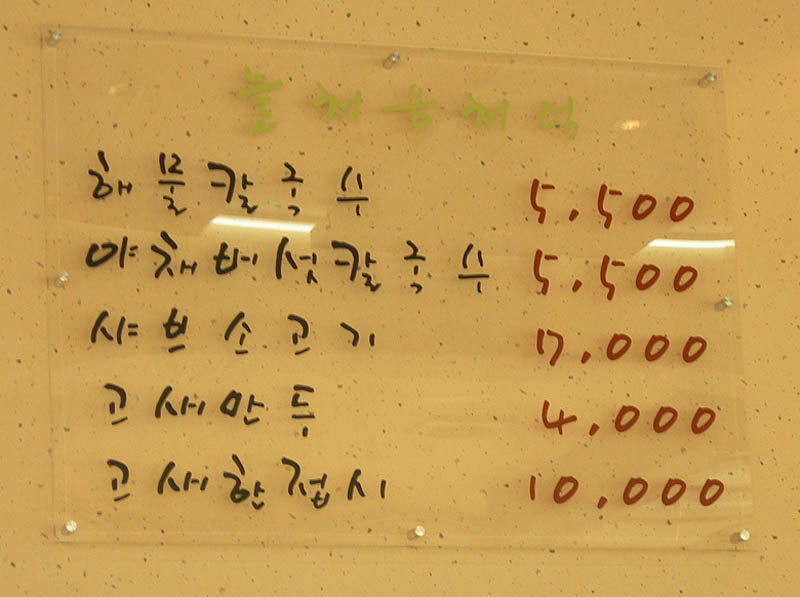 늘 처 음 처 럼
해 물 칼 국 수 5,500
야 채 버 섯 칼 국 수 5,500
샤 브 소 고 기 7,000
만 두 4,000
한 접 시 10,000